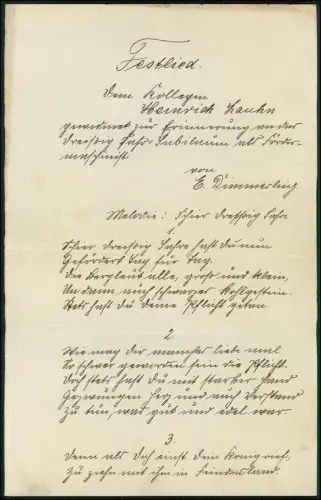 Festlied.
Dem Kollegen
Heinrich
gewidmet zur Erinnerung an das
Dreißig Jahr-Jubiläum als Förder-
maschinist
von
E. Dimmerling
Melodie: Schier dreißig Jahr
1.
Schier dreißig Jahre hast du nun
Gefördert Tag für Tag.
Die Bergleut alle, groß und klein,
Und auch schwarzes Kohlgestein.
Stets hast du deine Pflicht getan.
2.
Wie mag dir manches liebe mal
So schwer geworden sein die Pflicht.
Doch stets hast du mit starker Hand
Gezwungen Herz und auch Verstand
Zu tun, was gut und edel war.
3.
Denn als dich einst dein König rief,
Zu ziehn mit ihm in Feindesland